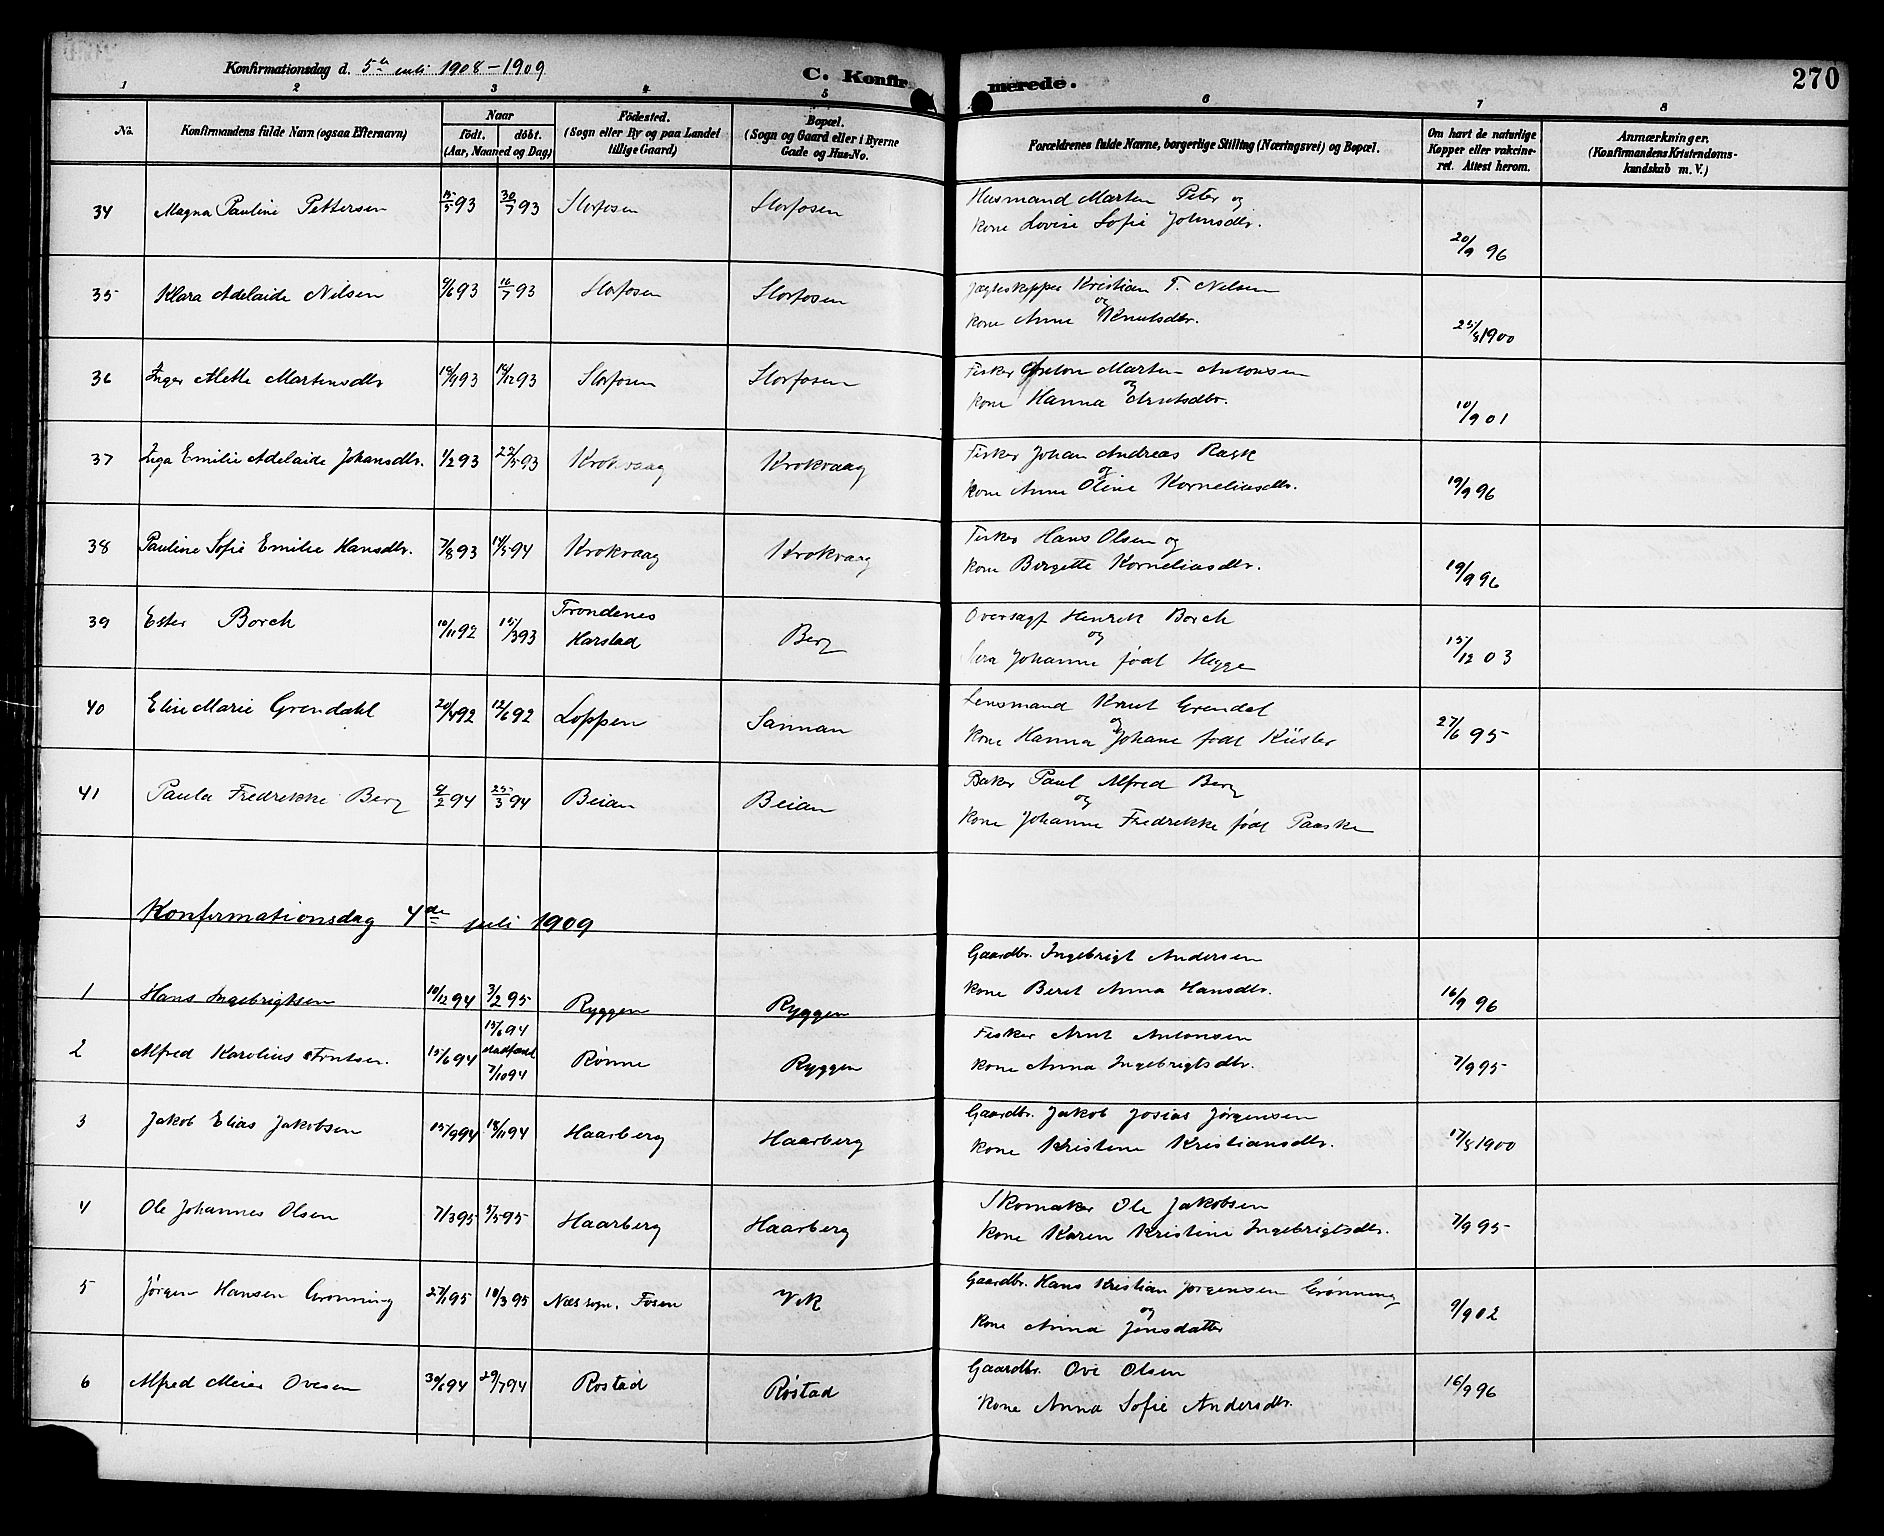 Konfirmationsdag d. 5te juli 1908-1909
C. Konfir merede. 270
1 2 3 4 5 6 7 8
No. Konfirmandens fulde Navn (ogsaa Efternavn) Naar födt. döbt. (Aar, Maaned og Dag) Födested. (Sogn eller By og paa Landet tillige Gaard) Bopæl. (Sogn og Gaard eller i Byerne Gade og Hus-No. Forældrenes fulde Navne, borgerlige Stilling (Næringsvei) og Bopæl. Om havt de naturlige Kopper eller vakcineret. Attest herom. Anmærkninger. (Konfirmandens Kristendomskundskab m. V.)
34 Magna Pauline Pettersen 15/5 93 30/7 93 Storfosen Storfosen Husmand Marten Peter og
kone Lovise Sofie Johnsdtr. 20/9 96
35 Klara Adelaide Nilsen 9/6 93 16/7 93 Storfosen Storfosen Jægteskipper Kristian T. Nilsen
og
kone Anne Knutsdtr. 25/8 1900
36 Inger Mette Martensdtr 19/9 93 14/12 93 Storfosen Storfosen Fisker Marten Antonsen
og
kone Hanna Arntsdtr. 10/9 01
37 Inga Emilie Adelaide Johansdtr. 1/2 93 22/5 93 Krokvaag Krokvaag Fisker Johan Andreas Rask
og
kone Anne Oline Korneliusdtr. 19/9 96
38 Pauline Sofie Emilie Hansdtr. 7/8 93 14/5 94 Krokvaag Krokvaag Fisker Hans Olsen og
kone Birgette Korneliusdtr. 19/9 96
39 Ester Borch 10/11 92 15/3 93 Trondenes
Harstad Berg Oversagf Henrik Borch
og
Johanne født Hegge 15/12 03
40 Elise Marie Grendahl 20/4 92 12/6 92 Loppen Sannan Lensmand Knut Grendal
og
kone Hanna Johane født Küster 27/6 95
41 Paula Fredrekke Berg 9/2 94 25/3 94 Beian Beian Baker Paul Alfred Berg
og
kone Johanne Fredrekke født Paaske
Konfirmationsdag 4de juli 1909
1 Hans Ingebrigtsen 10/12 94 3/2 95 Ryggen Ryggen Gaardbr. Ingebrigt Andersen
kone Beret Anna Hansdtr. 16/9 96
2 Alfred Karolius Arntsen. 15/6 94 15/6 94
stadfæst
7/10 94 Rønne Ryggen Fisker Arnt Antonsen
kone Anna Ingebrigtsdtr. 7/9 95
3 Jakob Elias Jakobsen 15/9 94 18/11 94 Haarberg Haarberg Gaardbr. Jakob Josias Jørgensen
kone Kristine Kristiansdtr. 17/8 1900
4 Ole Johannes Olsen 7/3 95 5/5 95 Haarberg Haarberg Skomaker Ole Jakobsen
kone Karen Kristine Ingebrigtsdtr. 7/9 95
5 Jørgen Hansen Grønning 27/1 95 10/3 95 Næs sogn. Fosen Vik Gaardbr. Hans Kristian Jørgensen Grønning
og
kone Anna Jensdatter 9/9 02
6 Alfred Meier Ovesen 30/6 94 29/7 94 Rostad Røstad Gaardbr. Ove Olsen
kone Anna Sofie Andersdtr. 16/9 96